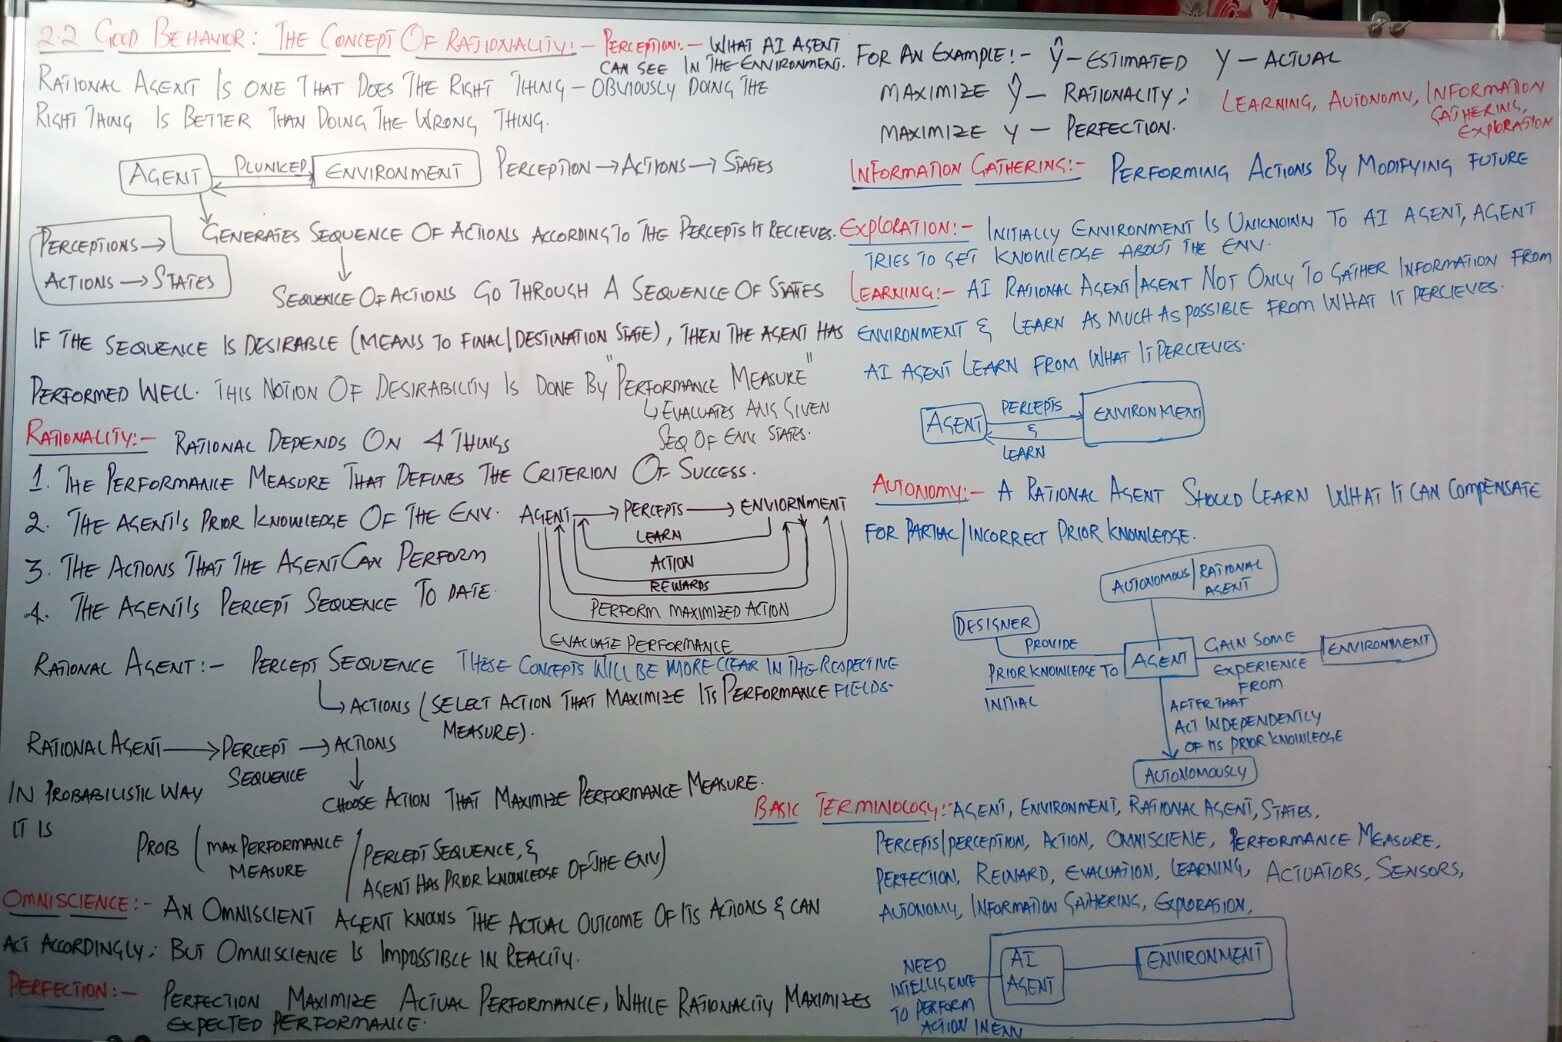 2.2 GOOD BEHAVIOR: THE CONCEPT OF RATIONALITY:- PERCEPTION:- WHAT AI AGENT
CAN SEE IN THE ENVIRONMENT.
RATIONAL AGENT IS ONE THAT DOES THE RIGHT THING - OBVIOUSLY DOING THE
RIGHT THING IS BETTER THAN DOING THE WRONG THING.
AGENT PLUNKED ENVIRONMENT PERCEPTION → ACTIONS → STATES
GENERATES SEQUENCE OF ACTIONS ACCORDING TO THE PERCEPTS IT RECIEVES.
PERCEPTIONS →
ACTIONS → STATES
SEQUENCE OF ACTIONS GO THROUGH A SEQUENCE OF STATES
IF THE SEQUENCE IS DESIRABLE (MEANS TO FINAL/DESTINATION STATE), THEN THE AGENT HAS
PERFORMED WELL. THIS NOTION OF DESIRABILITY IS DONE BY "PERFORMANCE MEASURE"
↳ EVALUATES ANY GIVEN
SEQ OF ENV STATES.
RATIONALITY:- RATIONAL DEPENDS ON 4 THINGS
1. THE PERFORMANCE MEASURE THAT DEFINES THE CRITERION OF SUCCESS.
2. THE AGENT'S PRIOR KNOWLEDGE OF THE ENV.
3. THE ACTIONS THAT THE AGENT CAN PERFORM
4. THE AGENT'S PERCEPT SEQUENCE TO DATE.
AGENT → PERCEPTS → ENVIORNMENT
LEARN
ACTION
REWARDS
PERFORM MAXIMIZED ACTION
EVALUATE PERFORMANCE
RATIONAL AGENT:- PERCEPT SEQUENCE THESE CONCEPTS WILL BE MORE CLEAR IN THE RESPECTIVE
FIELDS.
↳ ACTIONS (SELECT ACTION THAT MAXIMIZE ITS PERFORMANCE
MEASURE).
RATIONAL AGENT → PERCEPT → ACTIONS
SEQUENCE
CHOOSE ACTION THAT MAXIMIZE PERFORMANCE MEASURE.
IN PROBABILISTIC WAY
IT IS
PROB ( MAX PERFORMANCE
MEASURE / PERCEPT SEQUENCE, &
AGENT HAS PRIOR KNOWLEDGE OF THE ENV)
OMNISCIENCE:- AN OMNISCIENT AGENT KNOWS THE ACTUAL OUTCOME OF ITS ACTIONS & CAN
ACT ACCORDINGLY; BUT OMNISCIENCE IS IMPOSSIBLE IN REALITY.
PERFECTION:- PERFECTION MAXIMIZE ACTUAL PERFORMANCE, WHILE RATIONALITY MAXIMIZES
EXPECTED PERFORMANCE.
FOR AN EXAMPLE:- Ŷ - ESTIMATED Y - ACTUAL
MAXIMIZE Ŷ - RATIONALITY;
MAXIMIZE Y - PERFECTION.
LEARNING, AUTONOMY, INFORMATION
GATHERING,
EXPLORATION
INFORMATION GATHERING:- PERFORMING ACTIONS BY MODIFYING FUTURE
EXPLORATION:- INITIALLY ENVIRONMENT IS UNKNOWN TO AI AGENT, AGENT
TRIES TO GET KNOWLEDGE ABOUT THE ENV.
LEARNING:- AI RATIONAL AGENT/AGENT NOT ONLY TO GATHER INFORMATION FROM
ENVIRONMENT & LEARN AS MUCH AS POSSIBLE FROM WHAT IT PERCIEVES.
AI AGENT LEARN FROM WHAT IT PERCIEVES.
AGENT PERCEPTS ENVIRONMENT
&
LEARN
AUTONOMY:- A RATIONAL AGENT SHOULD LEARN WHAT IT CAN COMPENSATE
FOR PARTIAL/INCORRECT PRIOR KNOWLEDGE.
AUTONOMOUS/RATIONAL
AGENT
DESIGNER
PROVIDE
PRIOR KNOWLEDGE TO
INITIAL
AGENT
GAIN SOME
EXPERIENCE
FROM
ENVIRONMENT
AFTER THAT
ACT INDEPENDENTLY
OF ITS PRIOR KNOWLEDGE
AUTONOMOUSLY
BASIC TERMINOLOGY:- AGENT, ENVIRONMENT, RATIONAL AGENT, STATES,
PERCEPTS/PERCEPTION, ACTION, OMNISCIENE, PERFORMANCE MEASURE,
PERFECTION, REWARD, EVALUATION, LEARNING, ACTUATORS, SENSORS,
AUTONOMY, INFORMATION GATHERING, EXPLORATION,
NEED
INTELLIGENCE
TO PERFORM
ACTION IN ENV
AI
AGENT
ENVIRONMENT